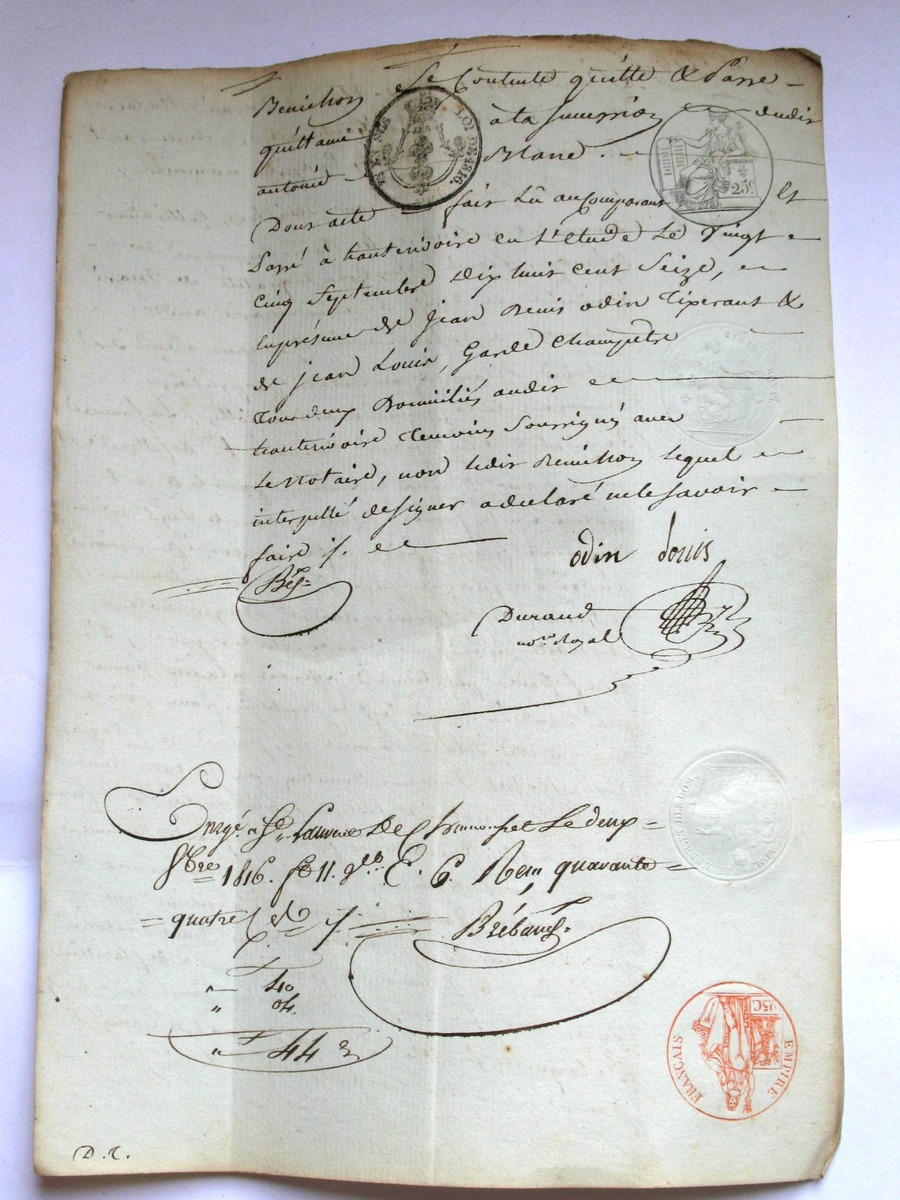 Benichon Se Contente quitte & Passe
quittance à la succession dudit
antoine Blanc.
TIMBRE LOI DE 1816.
25c
Dont acte fait Lû au Comparant Et
Passé à hauterivoire en L'Etude Le Vingt
cinq Septembre dix huit cent Seize, en
la présence de jean Denis odin Tixerant &
de jean Louis, Garde Champetre
Tous deux Domiciliés audit
hauterivoire Temoins Soussignés avec
Le Notaire, non Ledit Benichon Lequel
interpellé de signer a déclaré ne le savoir
faire ./.
odin Louis
Bés
Durand
nore Royal
Enrgé a St Laurent De Chamousset Le deux
8bre 1816. fo 11. Ro C. 6. Reçu quarante
quatre
Brébant
" 40
" 04.
" 44
EMPIRE FRANÇAIS
25C
D. T.